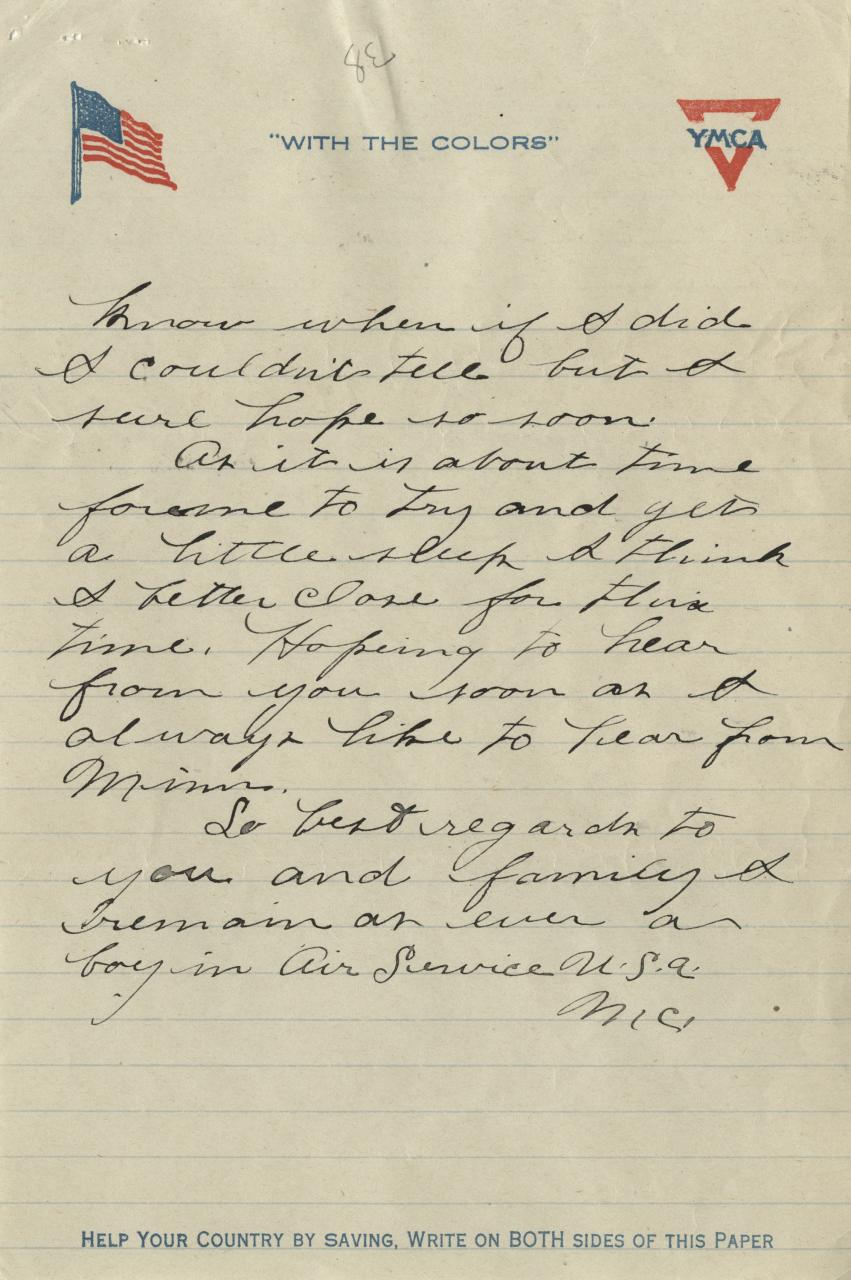 38
"WITH THE COLORS"
YMCA
know when if I did
I couldn't tell but I
sure hope so soon.
As it is about time
for me to try and get
a little sleep I think
I better close for this
time. Hopeing to hear
from you soon as I
always like to hear from
Minn.
So best regards to
you and family I
remain as ever a
boy in Air Service U.S.A.
Mc.
HELP YOUR COUNTRY BY SAVING, WRITE ON BOTH SIDES OF THIS PAPER